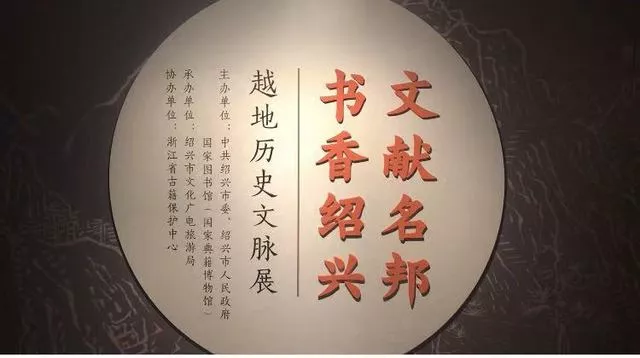 文献名邦
书香绍兴
越地历史文脉展
主办单位：中共绍兴市委、绍兴市人民政府
国家图书馆（国家典籍博物馆）
承办单位：绍兴市文化广电旅游局
协办单位：浙江省古籍保护中心